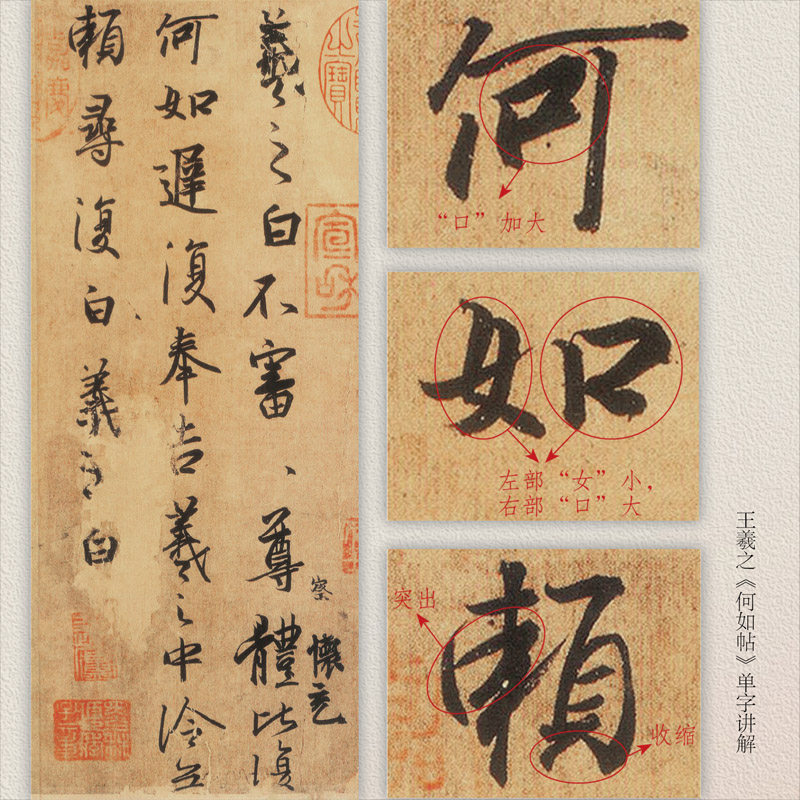 羲之白不審、尊體比復
察
懷充
何如遲復奉告羲之中冷無
賴尋復白羲之白
宣和
何
“口”加大
如
左部“女”小，
右部“口”大
賴
突出
收缩
王羲之《何如帖》单字讲解